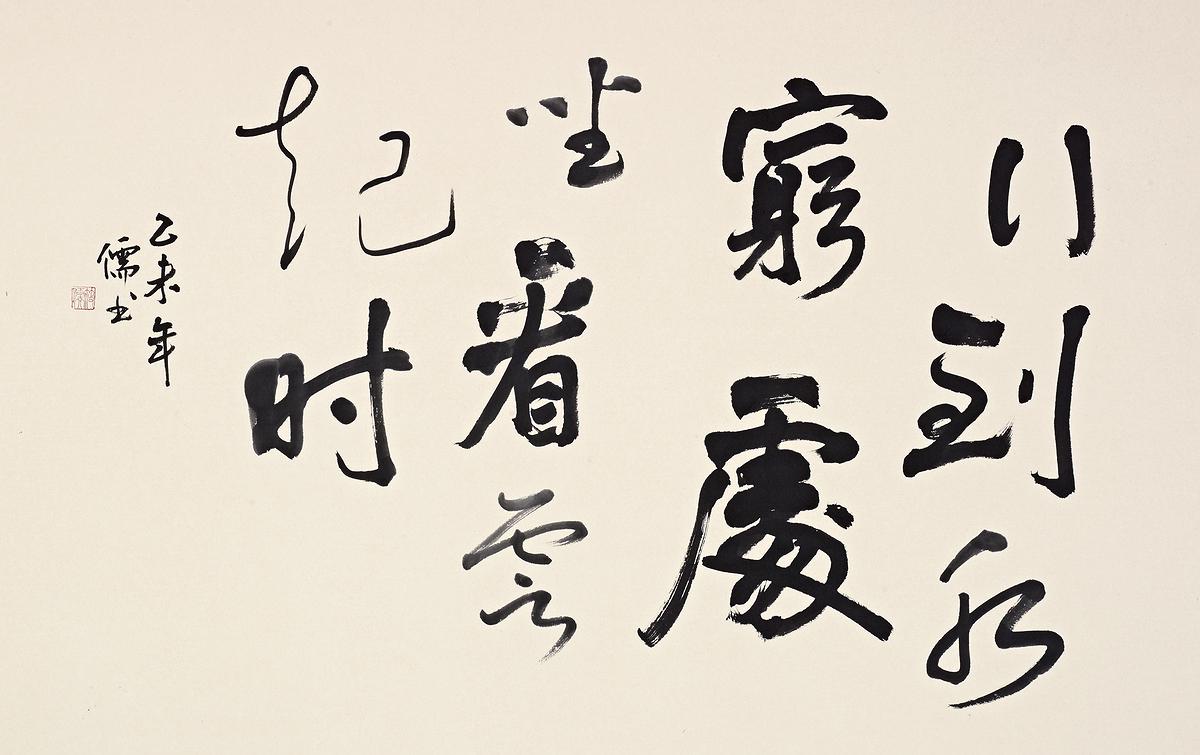 行到水
窮處
坐看雲
起时
乙未年
儒书